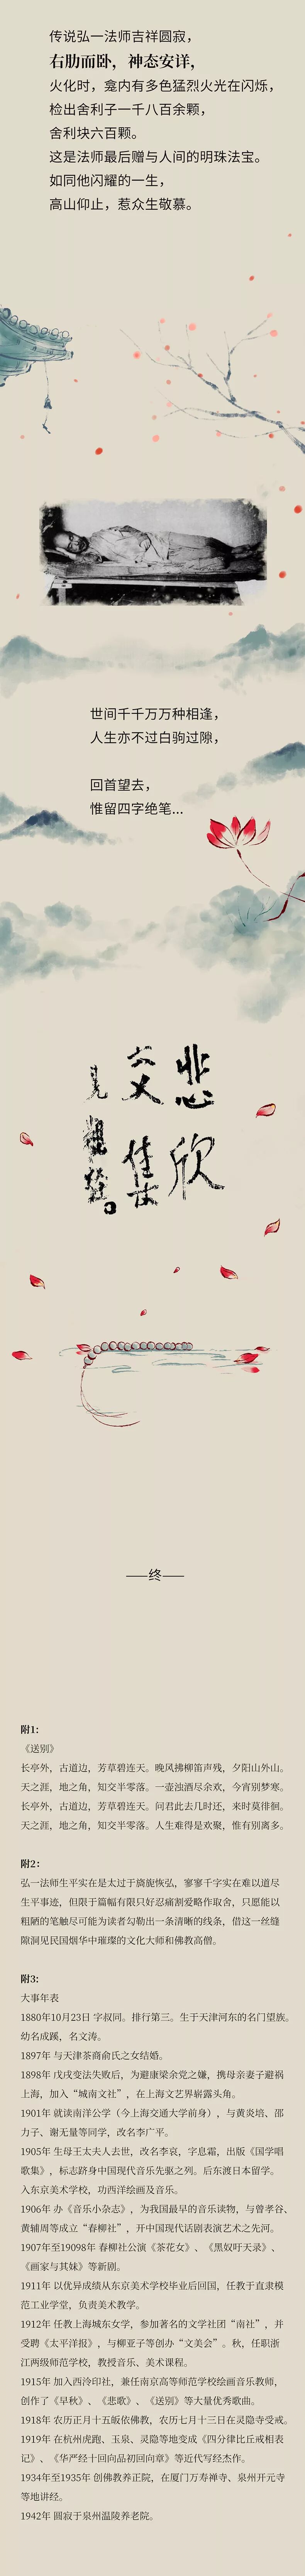 传说弘一法师吉祥圆寂，
右肋而卧，神态安详，
火化时，龛内有多色猛烈火光在闪烁，
检出舍利子一千八百余颗，
舍利块六百颗。
这是法师最后赠与人间的明珠法宝。
如同他闪耀的一生，
高山仰止，惹众生敬慕。
世间千千万万种相逢，
人生亦不过白驹过隙，
回首望去，
惟留四字绝笔...
悲欣
交集
见
观经
——终——
附1:
《送别》
长亭外，古道边，芳草碧连天。晚风拂柳笛声残，夕阳山外山。
天之涯，地之角，知交半零落。一壶浊酒尽余欢，今宵别梦寒。
长亭外，古道边，芳草碧连天。问君此去几时还，来时莫徘徊。
天之涯，地之角，知交半零落。人生难得是欢聚，惟有别离多。
附2:
弘一法师生平实在是太过于旖旎恢弘，寥寥千字实在难以道尽
生平事迹，但限于篇幅有限只好忍痛割爱略作取舍，只愿能以
粗陋的笔触尽可能为读者勾勒出一条清晰的线条，借这一丝缝
隙洞见民国烟华中璀璨的文化大师和佛教高僧。
附3:
大事年表
1880年10月23日 字叔同。排行第三。生于天津河东的名门望族。
幼名成蹊，名文涛。
1897年 与天津茶商俞氏之女结婚。
1898年 戊戌变法失败后，为避康梁余党之嫌，携母亲妻子避祸
上海，加入“城南文社”，在上海文艺界崭露头角。
1901年 就读南洋公学（今上海交通大学前身），与黄炎培、邵
力子、谢无量等同学，改名李广平。
1905年 生母王太夫人去世，改名李哀，字息霜，出版《国学唱
歌集》，标志跻身中国现代音乐先驱之列。后东渡日本留学。
入东京美术学校，功西洋绘画及音乐。
1906年 办《音乐小杂志》，为我国最早的音乐读物，与曾孝谷、
黄辅周等成立“春柳社”，开中国现代话剧表演艺术之先河。
1907年至19098年 春柳社公演《茶花女》、《黑奴吁天录》、
《画家与其妹》等新剧。
1911年 以优异成绩从东京美术学校毕业后回国，任教于直隶模
范工业学堂，负责美术教学。
1912年 任教上海城东女学，参加著名的文学社团“南社”，并
受聘《太平洋报》，与柳亚子等创办“文美会”。秋，任职浙
江两级师范学校，教授音乐、美术课程。
1915年 加入西泠印社，兼任南京高等师范学校绘画音乐教师，
创作了《早秋》、《悲歌》、《送别》等大量优秀歌曲。
1918年 农历正月十五皈依佛教，农历七月十三日在灵隐寺受戒。
1919年 在杭州虎跑、玉泉、灵隐等地变成《四分律比丘戒相表
记》、《华严经十回向品初回向章》等近代写经杰作。
1934年至1935年 创佛教养正院，在厦门万寿禅寺、泉州开元寺
等地讲经。
1942年 圆寂于泉州温陵养老院。